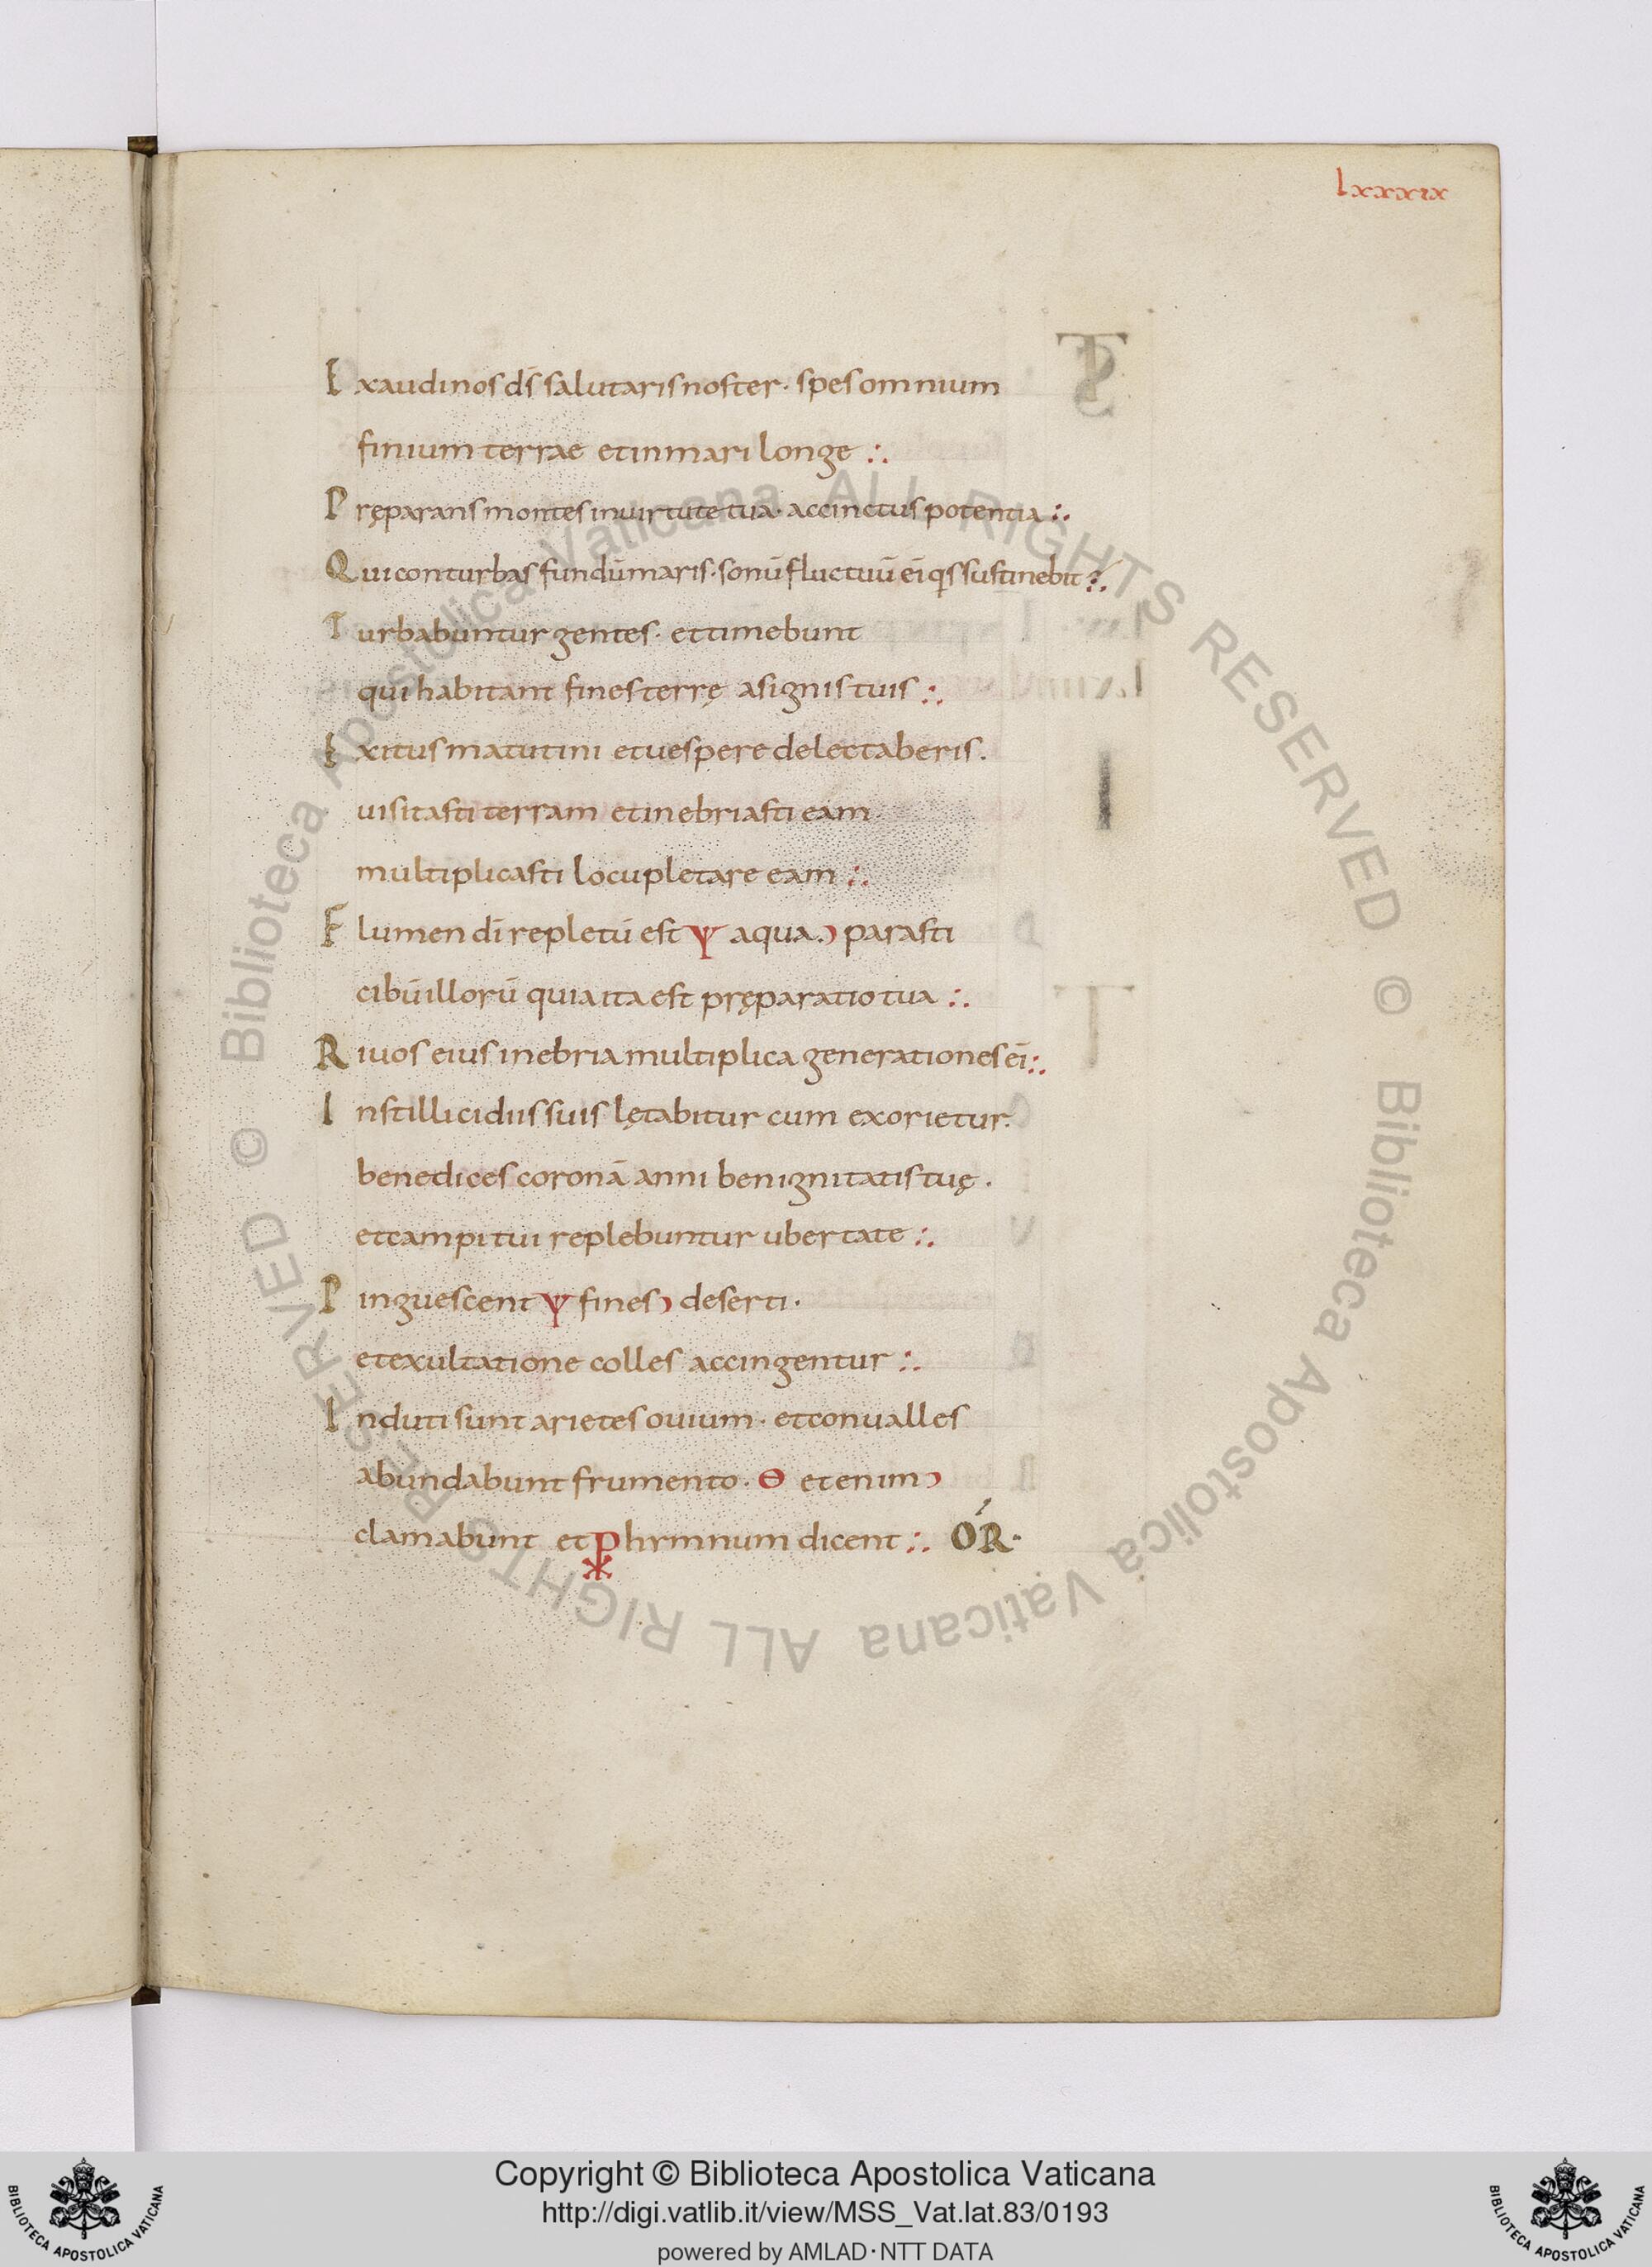 lxxxxix
Exaudi nos d̄s salutaris noster · spes omnium
finium terrae et in mari longe :.
Pręparans montes in uirtute tua · accinctus potentia :.
Qui conturbas fundū maris · sonū fluctuū eī q̄s sustinebit ?.
Turbabuntur gentes · et timebunt
qui habitant fines terrę a signis tuis :.
Exitus matutini et uespere delectaberis .
uisitasti terram et inebriasti eam .
multiplicasti locupletare eam :.
Flumen dī repletū est Ψ aqua .ↄ parasti
cibū illorū quia ita est pręparatio tua :.
Riuos eius inebria multiplica generationes eī :.
In stillicidiis suis lętabitur cum exorietur .
benedices coronā anni benignitatis tuę .
et campi tui replebuntur ubertate :.
Pinguescent Ψ fines ↄ deserti .
et exultatione colles accingentur :.
Induti sunt arietes ouium · et conualles
abundabunt frumento . Θ etenim ↄ
clamabunt et ⳩ hymnum dicent :. OR ·
© Biblioteca Apostolica Vaticana ALL RIGHTS RESERVED © Biblioteca Apostolica Vaticana ALL RIGHTS RESERVED
Copyright © Biblioteca Apostolica Vaticana
http://digi.vatlib.it/view/MSS_Vat.lat.83/0193
powered by AMLAD·NTT DATA
BIBLIOTECA APOSTOLICA VATICANA
BIBLIOTECA APOSTOLICA VATICANA